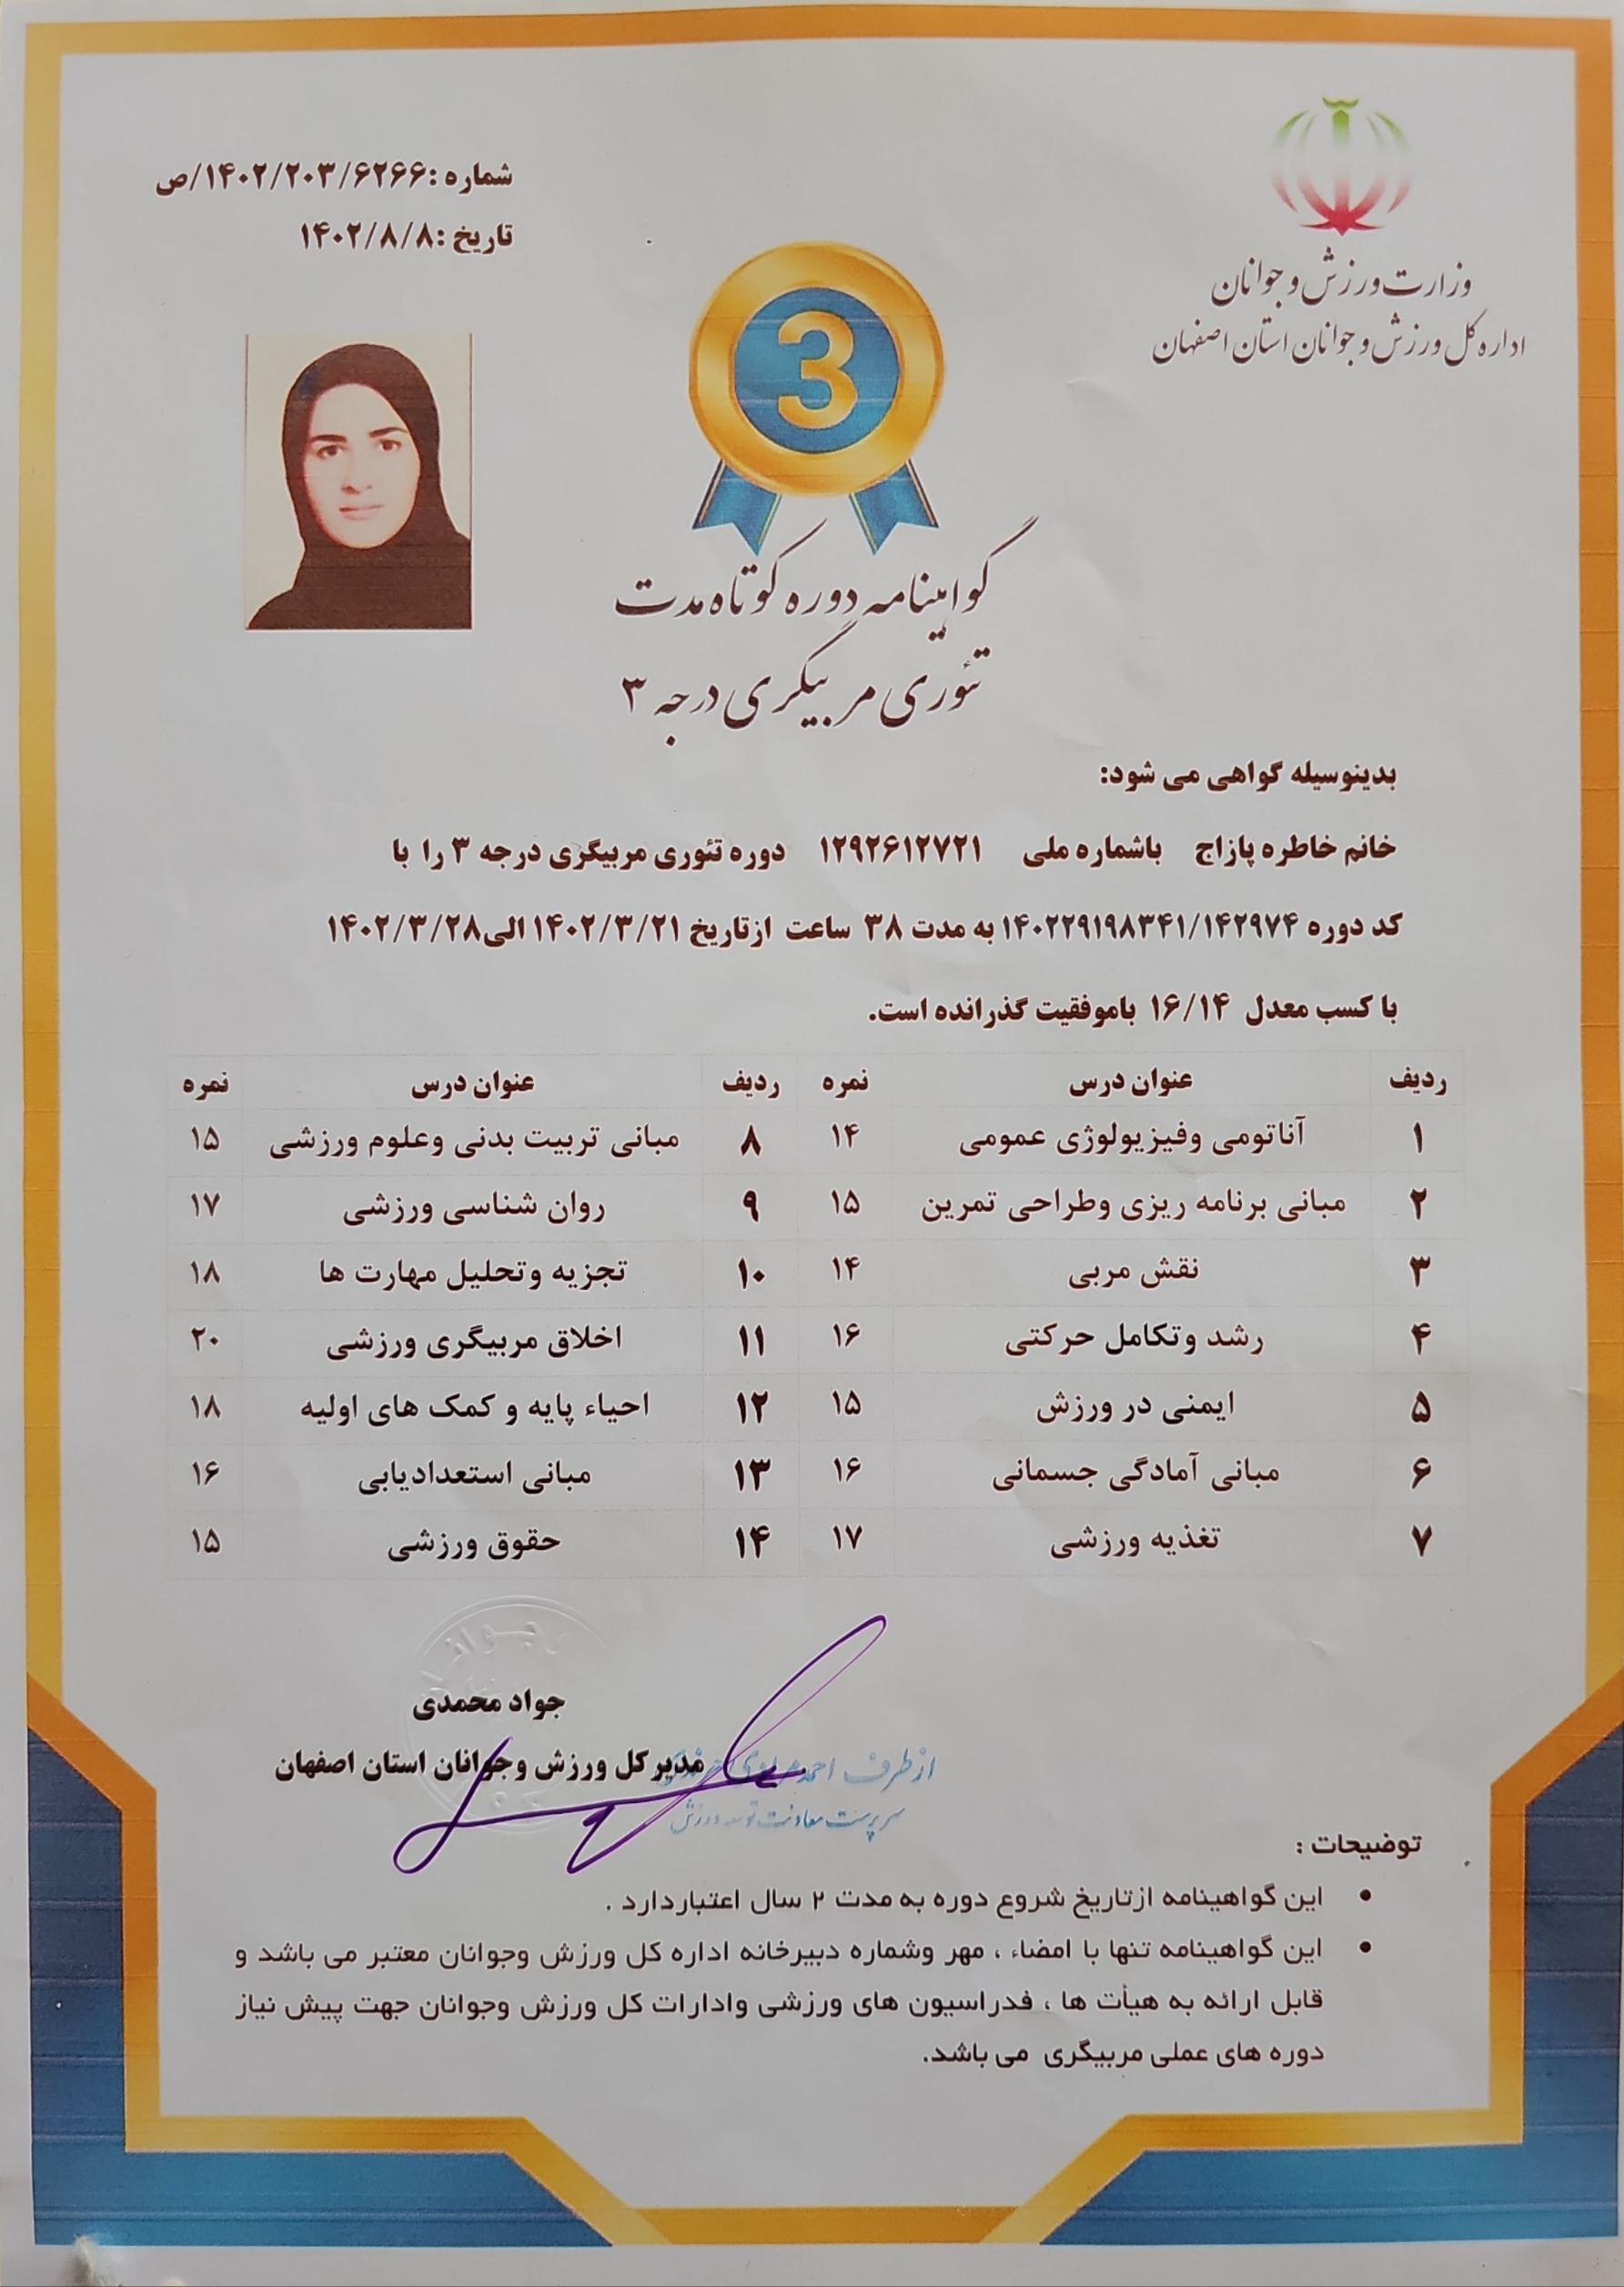 وزارت ورزش و جوانان
اداره کل ورزش و جوانان استان اصفهان
شماره :۱۴۰۲/۲۰۳/۶۲۶۶/ص
تاریخ :۱۴۰۲/۸/۸
3
گواهینامه دوره کوتاه مدت
تئوری مربیگری درجه ۳
بدینوسیله گواهی می شود:
خانم خاطره پازاج باشماره ملی ۱۲۹۲۶۱۲۷۲۱ دوره تئوری مربیگری درجه ۳ را با
کد دوره ۱۴۰۲۲۹۱۹۸۳۴۱/۱۴۲۹۷۴ به مدت ۳۸ ساعت ازتاریخ ۱۴۰۲/۳/۲۱ الی۱۴۰۲/۳/۲۸
با کسب معدل ۱۶/۱۴ باموفقیت گذرانده است.
ردیف عنوان درس نمره ردیف عنوان درس نمره
۱ آناتومی وفیزیولوژی عمومی ۱۴ ۸ مبانی تربیت بدنی وعلوم ورزشی ۱۵
۲ مبانی برنامه ریزی وطراحی تمرین ۱۵ ۹ روان شناسی ورزشی ۱۷
۳ نقش مربی ۱۴ ۱۰ تجزیه وتحلیل مهارت ها ۱۸
۴ رشد وتکامل حرکتی ۱۶ ۱۱ اخلاق مربیگری ورزشی ۲۰
۵ ایمنی در ورزش ۱۵ ۱۲ احیاء پایه و کمک های اولیه ۱۸
۶ مبانی آمادگی جسمانی ۱۶ ۱۳ مبانی استعدادیابی ۱۶
۷ تغذیه ورزشی ۱۷ ۱۴ حقوق ورزشی ۱۵
جواد محمدی
مدیرکل ورزش وجوانان استان اصفهان
از طرف احمد
سرپرست معاونت توسعه ورزش
توضیحات :
• این گواهینامه ازتاریخ شروع دوره به مدت ۲ سال اعتباردارد .
• این گواهینامه تنها با امضاء ، مهر وشماره دبیرخانه اداره کل ورزش وجوانان معتبر می باشد و
قابل ارائه به هیأت ها ، فدراسیون های ورزشی وادارات کل ورزش وجوانان جهت پیش نیاز
دوره های عملی مربیگری می باشد.